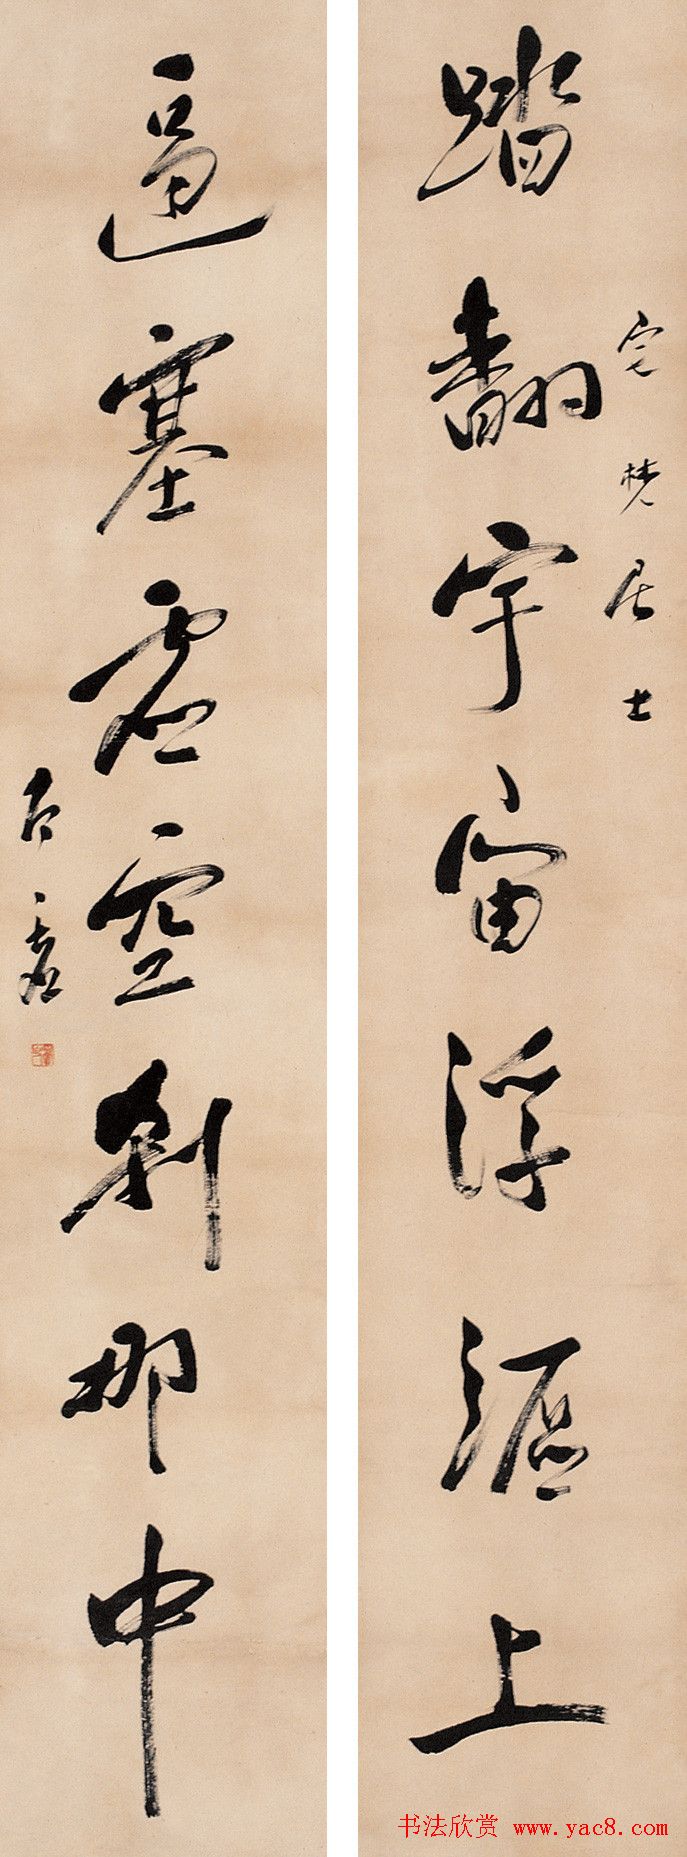 踏翻宇宙浮漚上
宅梵居士
逼塞虛空剎那中
书法欣赏 www.yac8.com